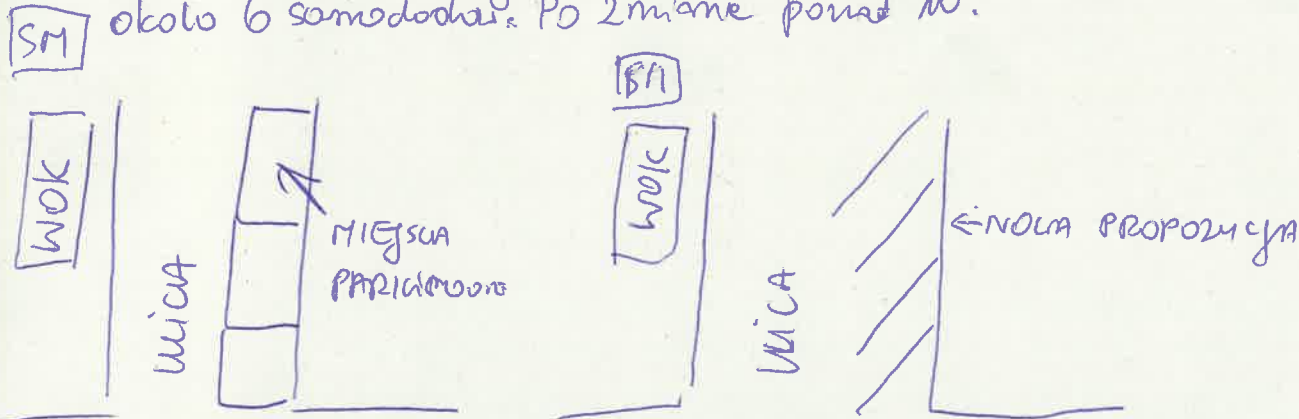 SM około 6 samodochaż. Po zmianie ponad 10.
SM
WOK
WOK
ULICA
MIEJSCA
PARKINGOWE
ULICA
←NOWA PROPOZYCJA